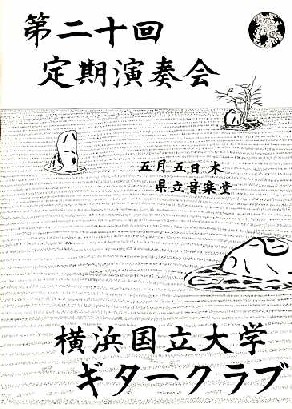 第二十回
定期演奏会
五月五日木
県立音楽堂
横浜国立大学
ギタークラブ